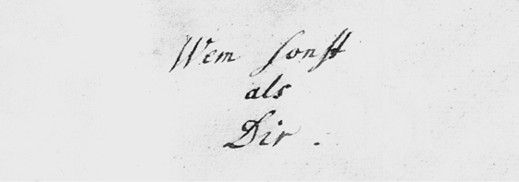 Wem sonst
als
Dir.